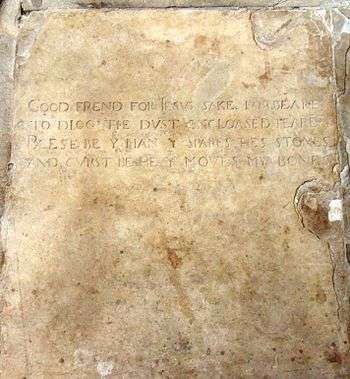 GOOD FREND FOR IESVS SAKE FORBEARE
TO DIGG THE DVST ENCLOASED HEARE
BLESE BE Y MAN Y SPARES HES STONES
AND CVRST BE HE Y MOVES MY BONES